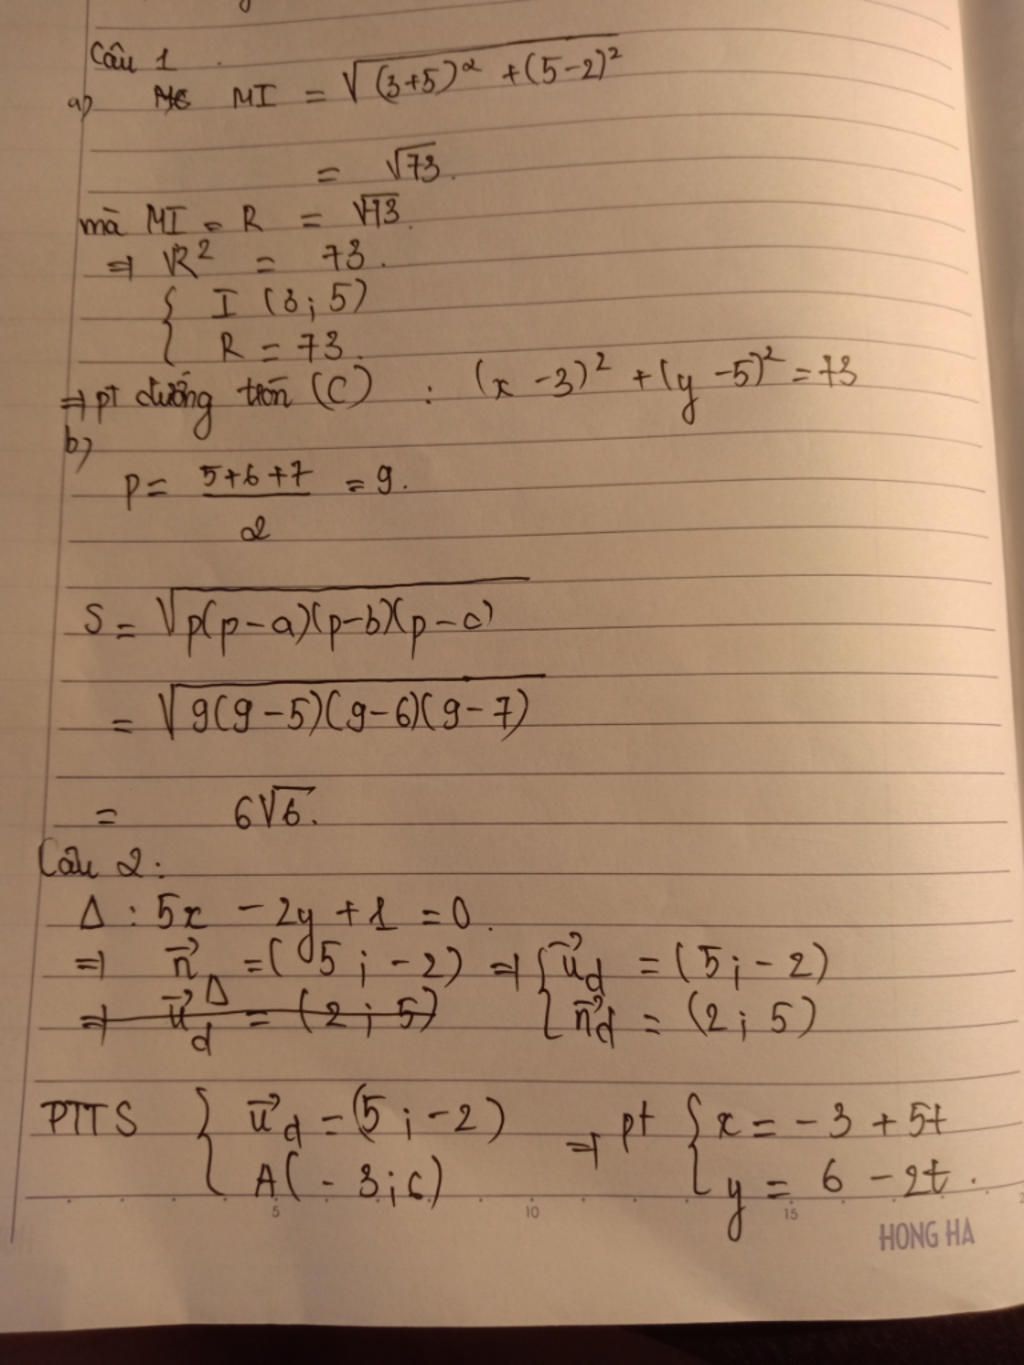 Câu 1.
a) MI = √(3+5)² + (5-2)²
= √73.
mà MI = R = √73.
⇒ R² = 73.
{ I (3; 5)
R = 73.
⇒ pt đường tròn (C) : (x - 3)² + (y - 5)² = 73
b)
P = 5+6+7 / 2 = 9.
S = √p(p-a)(p-b)(p-c)
= √9(9-5)(9-6)(9-7)
= 6√6.
Câu 2:
Δ : 5x - 2y + 1 = 0.
⇒ n⃗Δ = (5; -2) ⇒ { u⃗d = (5; -2)
⇒ u⃗d = (2; 5) n⃗d = (2; 5)
PTTS { u⃗d = (5; -2) ⇒ pt { x = -3 + 5t
A(-3; 6) y = 6 - 2t.
5 10 15
HONG HA